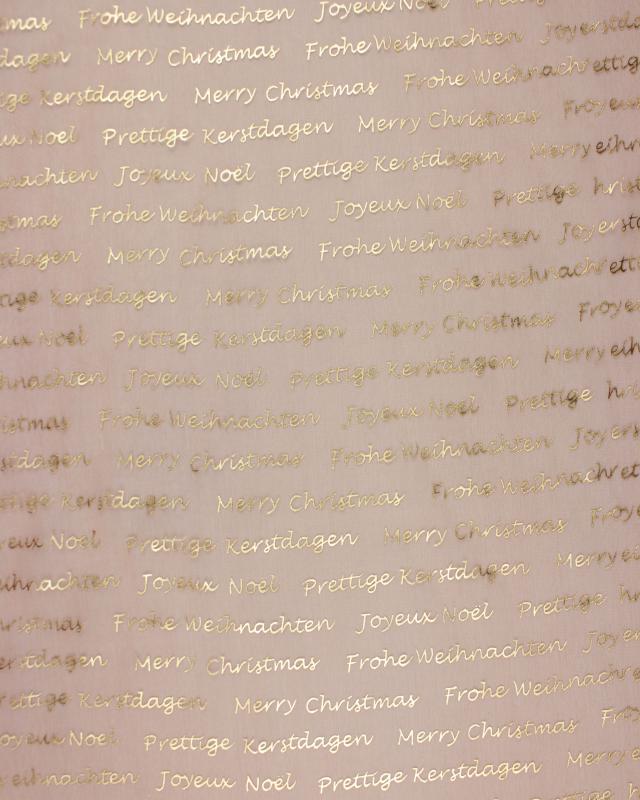 mas Frohe Weihnachten Joyeux Noël
dagen Merry Christmas Frohe Weihnachten Joyerstda
ige Kerstdagen Merry Christmas Frohe Weihnachrettig
ux Noël Prettige Kerstdagen Merry Christmas Froyeux
nachten Joyeux Noël Prettige Kerstdagen Merryeihn
stmas Frohe Weihnachten Joyeux Noël Prettige hrist
tdagen Merry Christmas Frohe Weihnachten Joyersta
tige Kerstdagen Merry Christmas Frohe Weihnachretti
ux Noël Prettige Kerstdagen Merry Christmas Froyeu
hnachten Joyeux Noël Prettige Kerstdagen Merryeih
istmas Frohe Weihnachten Joyeux Noël Prettige hri
stdagen Merry Christmas Frohe Weihnachten Joyers
ttige Kerstdagen Merry Christmas Frohe Weihnachret
eux Noël Prettige Kerstdagen Merry Christmas Froye
ihnachten Joyeux Noël Prettige Kerstdagen Merryei
hristmas Frohe Weihnachten Joyeux Noël Prettige hr
erstdagen Merry Christmas Frohe Weihnachten Joyer
rettige Kerstdagen Merry Christmas Frohe Weihnachre
oyeux Noël Prettige Kerstdagen Merry Christmas Froy
eihnachten Joyeux Noël Prettige Kerstdagen Merrye